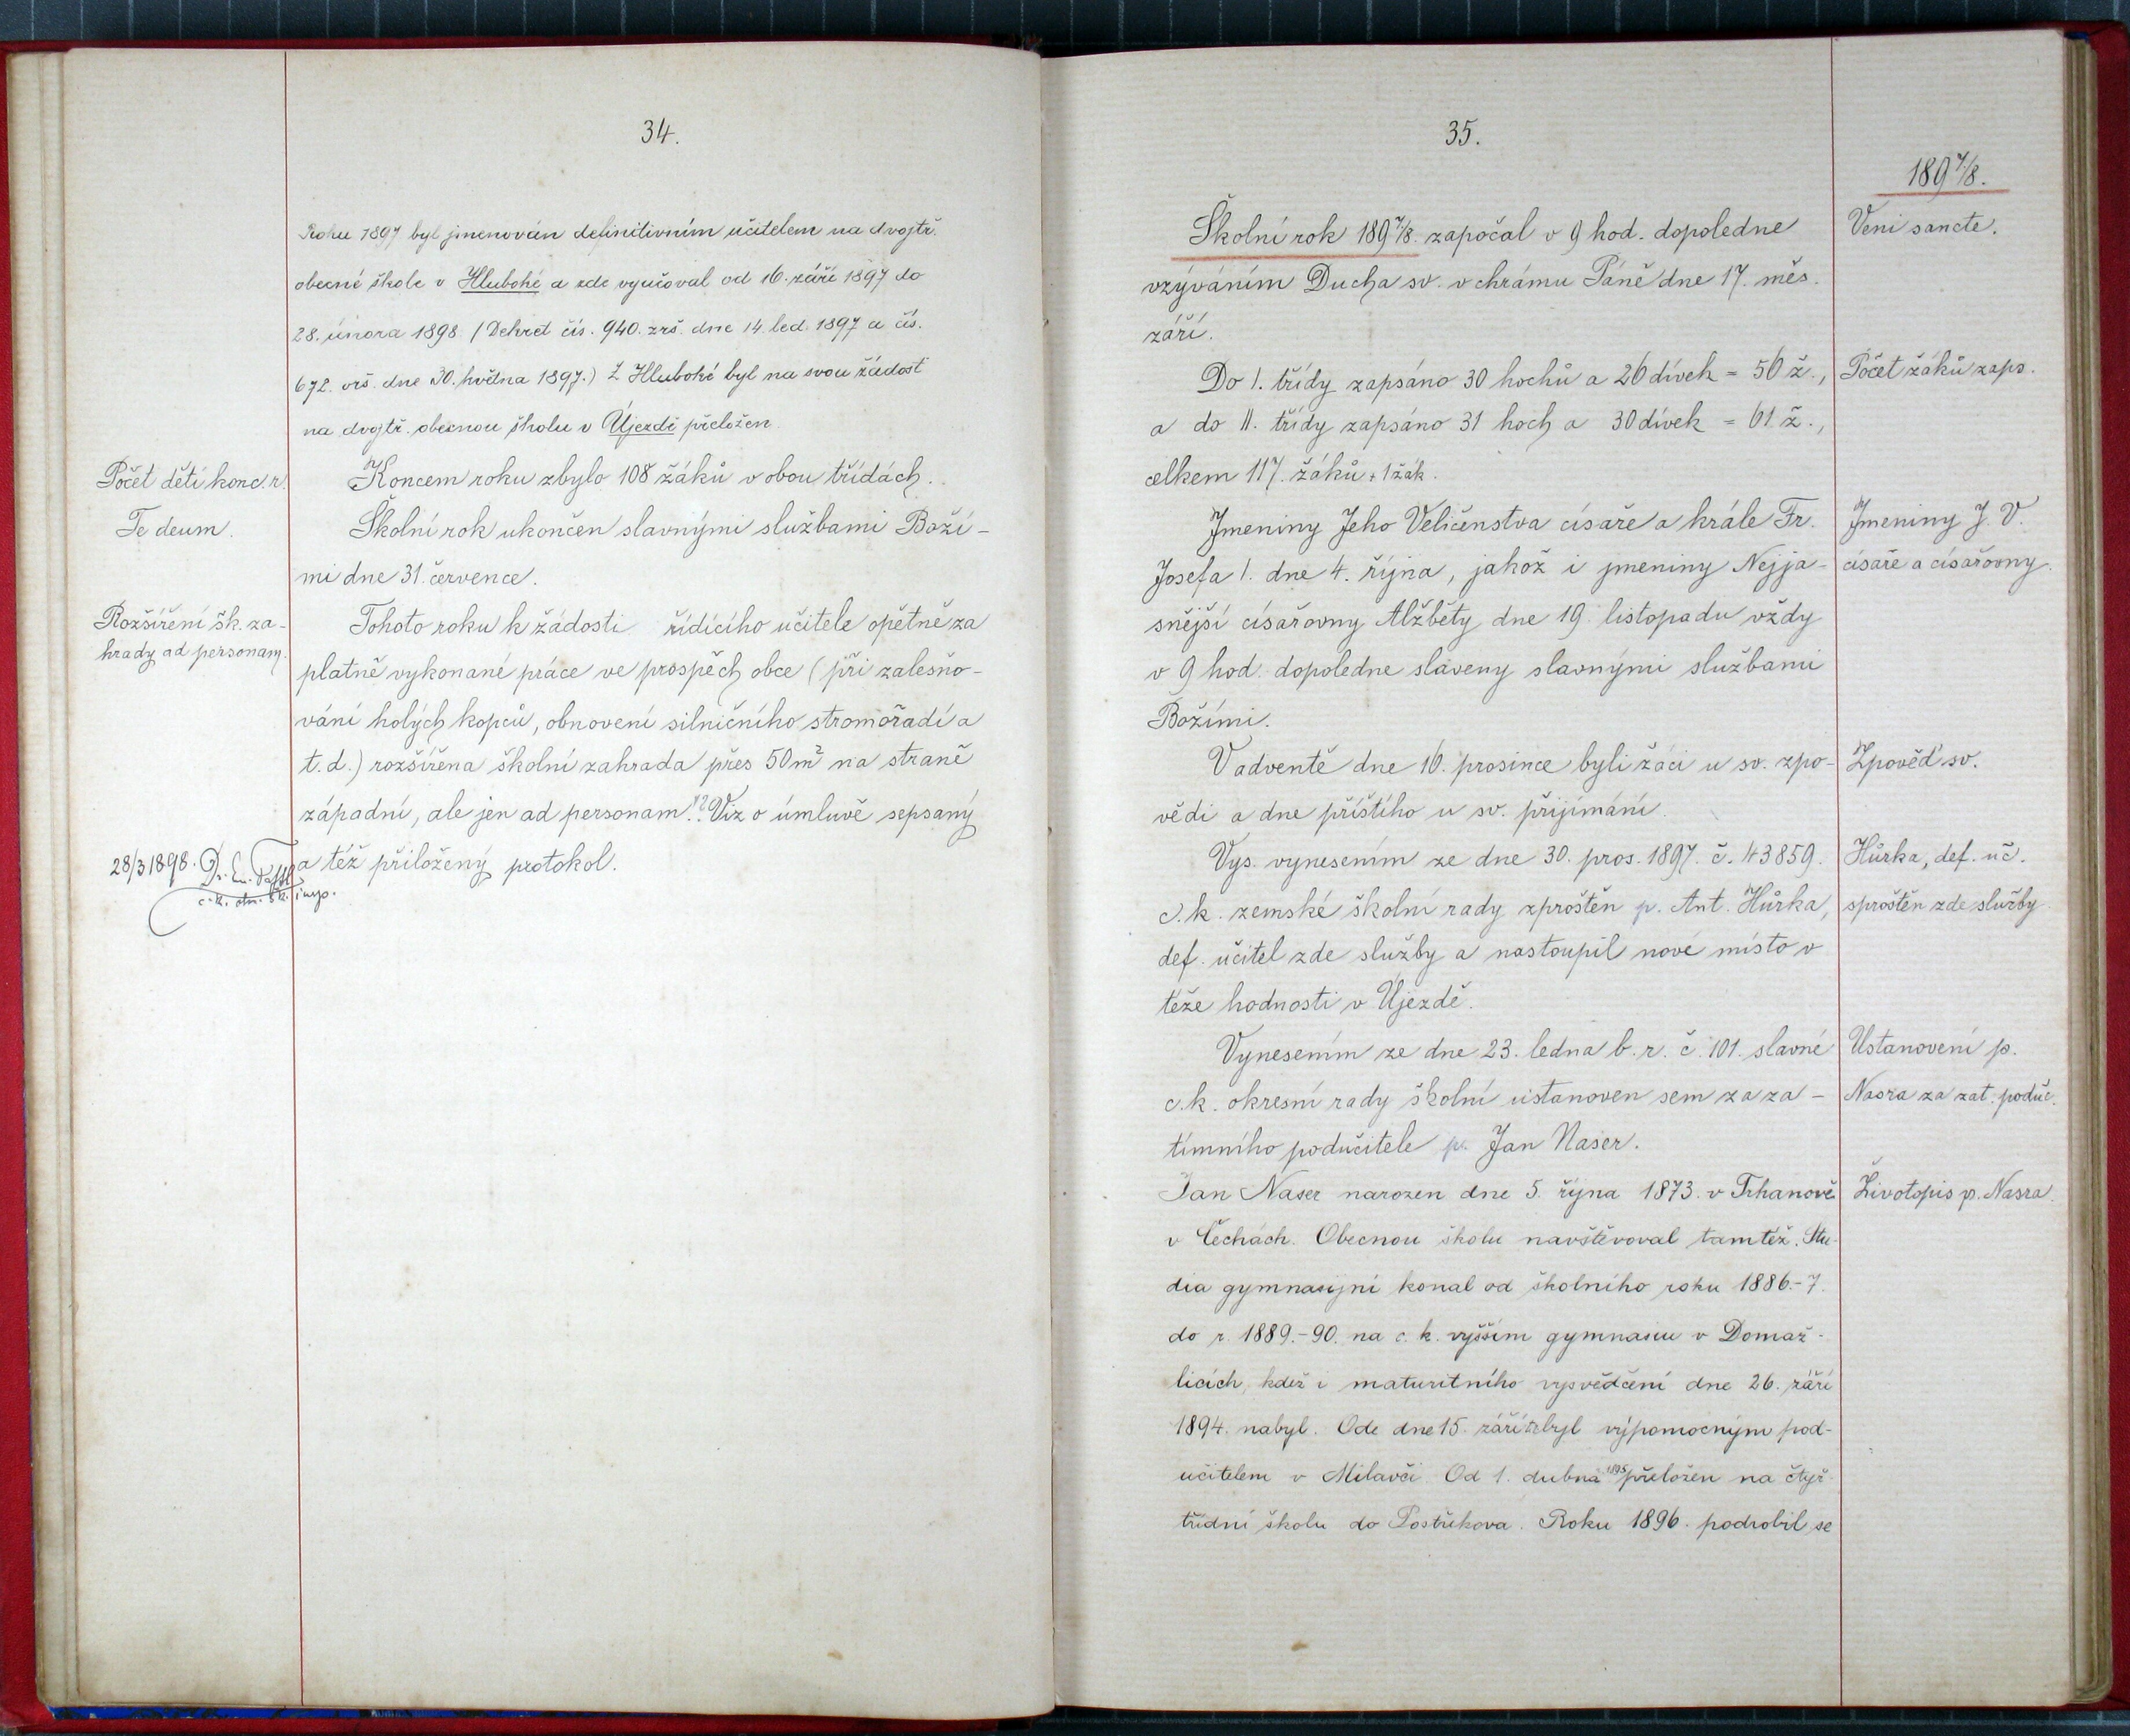 34.
Roku 1897 byl jmenován definitivním učitelem na dvojtř.
obecné škole v Hluboké a zde vyučoval od 16. září 1897 do
28. února 1898. (Dekret čís. 940. zrš. dne 14. led. 1897 a čís.
672. orš. dne 30. května 1897.) Z Hluboké byl na svou žádost
na dvojtř. obecnou školu v Újezdě přeložen.
Počet dětí konc. r.
Koncem roku zbylo 108 žáků v obou třídách.
Te deum.
Školní rok ukončen slavnými službami Boží-
mi dne 31. července.
Rozšíření šk. za-
hrady ad personam.
Tohoto roku k žádosti řídícího učitele opětně za
platně vykonané práce ve prospěch obce (při zalesňo-
vání holých kopců, obnovení silničního stromořadí a
t. d.) rozšířena školní zahrada přes 50 m² na straně
západní, ale jen ad personam.!? Viz o úmluvě sepsaný
a též přiložený protokol.
28/3 1898. Dr. Em.
c. k. okr. šk. insp.
35.
1897/8.
Školní rok 1897/8. započal v 9 hod. dopoledne
vzýváním Ducha sv. v chrámu Páně dne 17. měs.
září.
Veni sancte.
Do I. třídy zapsáno 30 hochů a 26 dívek = 56 ž.,
a do II. třídy zapsáno 31 hoch a 30 dívek = 61 ž.,
celkem 117. žáků + 1 žák.
Počet žáků zaps.
Jmeniny Jeho Veličenstva císaře a krále Fr.
Josefa I. dne 4. října, jakož i jmeniny Nejja-
snější císařovny Alžběty dne 19. listopadu vždy
v 9 hod. dopoledne slaveny slavnými službami
Božími.
Jmeniny J. V.
císaře a císařovny.
V adventě dne 16. prosince byli žáci u sv. zpo-
vědi a dne příštího u sv. přijímání.
Zpověď sv.
Vys. vynesením ze dne 30. pros. 1897. č. 43859.
c. k. zemské školní rady zproštěn p. Ant. Hůrka,
def. učitel zde služby a nastoupil nové místo v
téže hodnosti v Újezdě.
Hůrka, def. uč.
sproštěn zde služby.
Vynesením ze dne 23. ledna b. r. č. 101. slavné
c. k. okresní rady školní ustanoven sem za za-
tímního podučitele p. Jan Naser.
Ustanovení p.
Nasra za zat. poduč.
Jan Naser narozen dne 5. října 1873. v Trhanově
v Čechách. Obecnou školu navštěvoval tamtéž. Stu-
dia gymnasijní konal od školního roku 1886.-7.
do r. 1889.-90. na c. k. vyšším gymnasiu v Domaž-
licích, kdež i maturitního vysvědčení dne 26. září
1894. nabyl. Ode dne 15. září byl výpomocným pod-
učitelem v Milavči. Od 1. dubna 1895 přeložen na čtyř-
třídní školu do Postřekova. Roku 1896. podrobil se
Životopis p. Nasra.